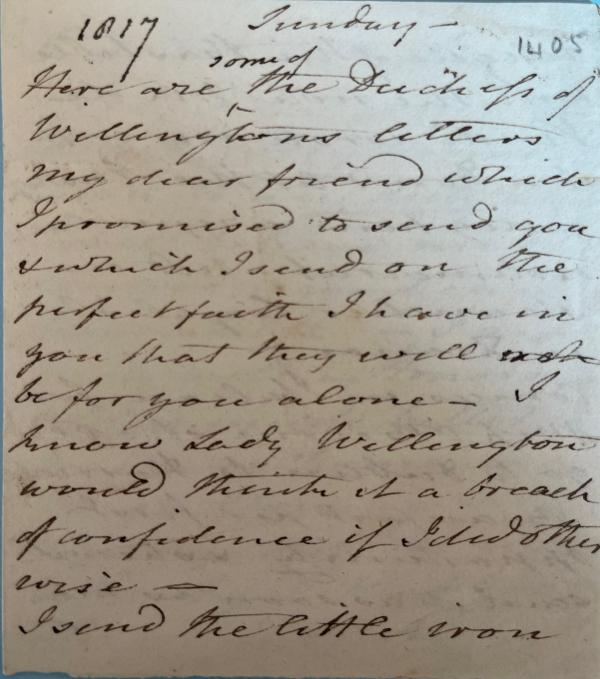 1817 Sunday —
1405
some of
Here are the Duchess of
Wellingtons letters
my dear friend which
I promised to send you
& which I send on the
perfect faith I have in
you that they will
be for you alone — I
know Lady Wellington
would think it a breach
of confidence if I did other
wise —
I send the little iron